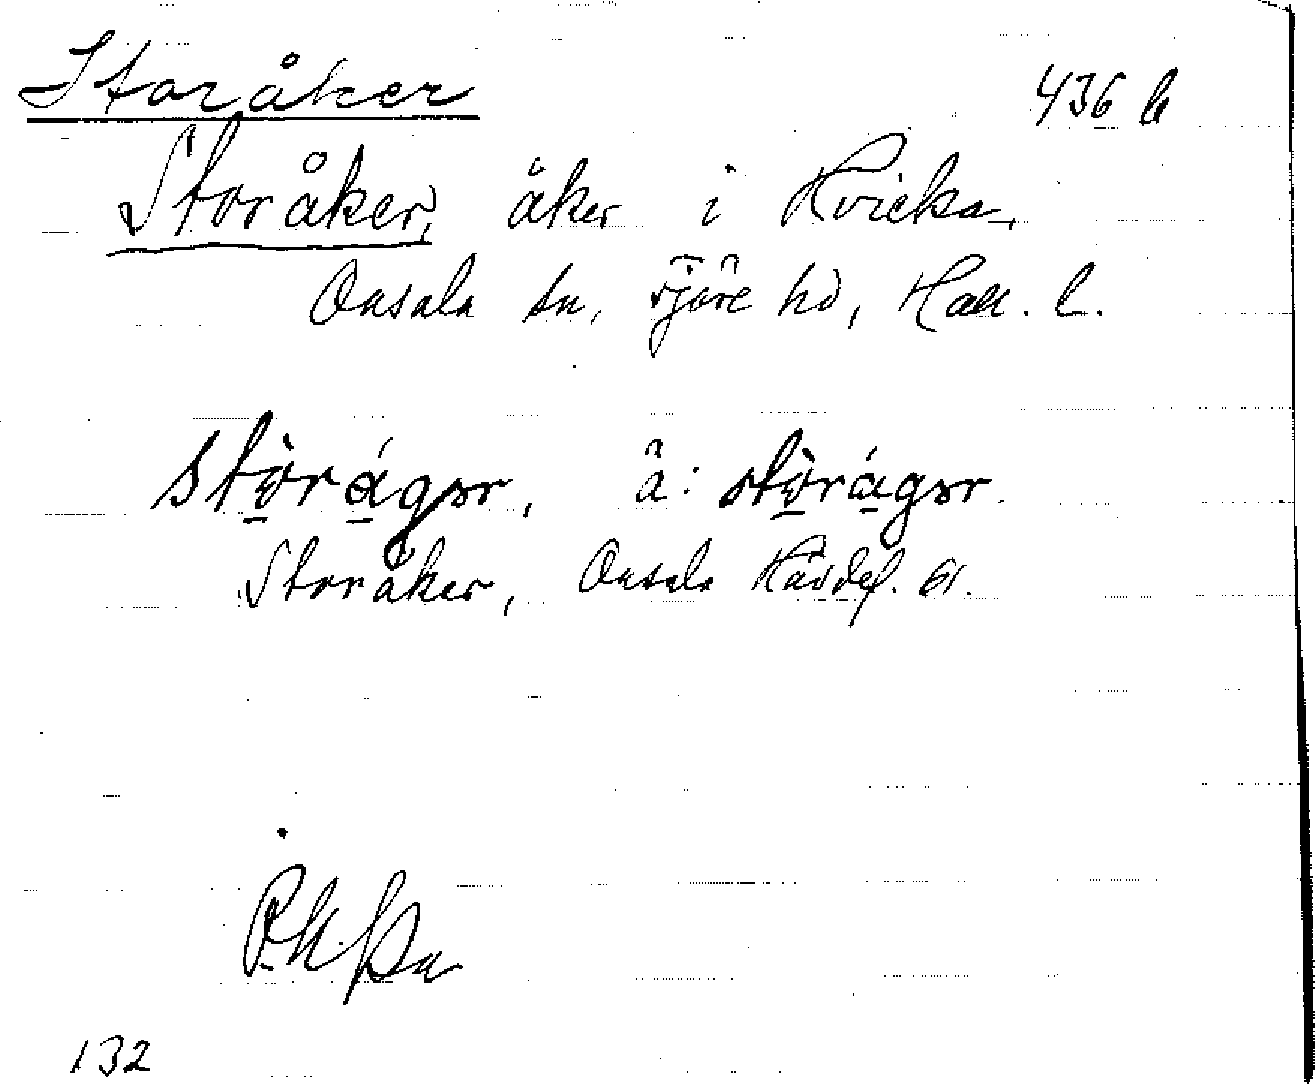 Storåker
436 b
Storåker, åker i Hvicka,
Onsala sn, Fjäre hd, Hall. l.
stòrágər, ä: stòrágər.
Storåker, Onsala Hävdef. 61.
132